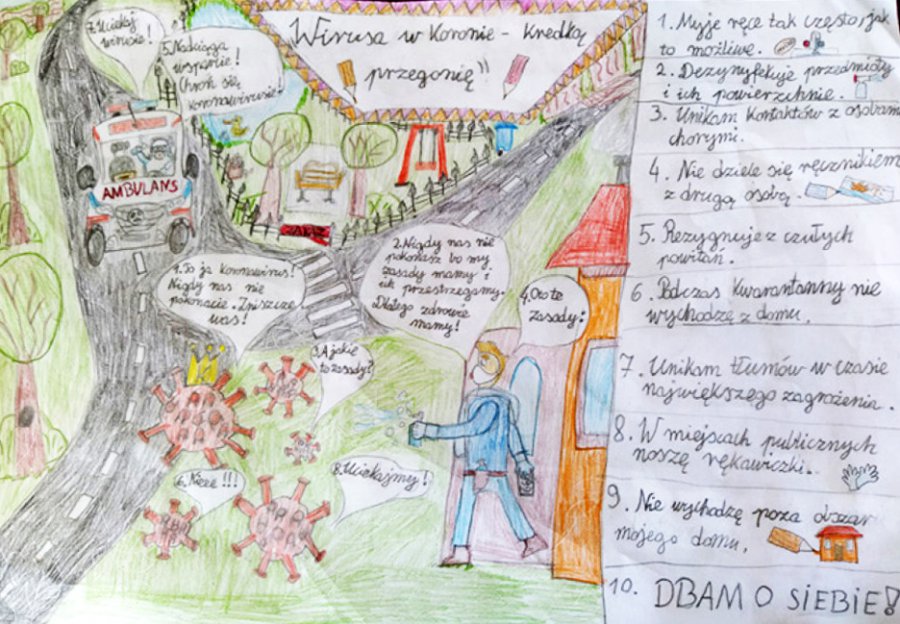 Wirusa w Koronie - Kredką
przegonię"
7. Uciekaj
wirusie!
5. Nadciąga
wsparcie!
Chroń się
koronawirusie!
AMBULANS
ZAKAZ
1. To ja koronawirus!
Nigdy nas nie
pokonacie. Zniszczę
was!
2. Nigdy nas nie
pokonasz bo my
zasady mamy i
ich przestrzegamy.
Dlatego zdrowie
mamy!
3. A jakie
to zasady?
4. Oto te
zasady:
6. Nieee!!!
8. Uciekajmy!
1. Myje ręce tak często, jak
to możliwe.
2. Dezynfekuje przedmioty
i ich powierzchnie.
3. Unikam kontaktów z osobami
chorymi.
4. Nie dziele się ręcznikiem
z drugą osobą.
5. Rezygnuje z czułych
powitań.
6. Podczas kwarantanny nie
wychodzę z domu.
7. Unikam tłumów w czasie
największego zagrożenia.
8. W miejscach publicznych
noszę rękawiczki.
9. Nie wychodzę poza obszar
mojego domu.
10. DBAM O SIEBIE!